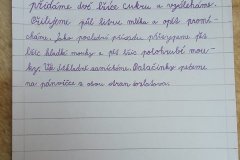 přidáme dvě lžíce cukru a vyšleháme.
Přilejeme půl litru mléka a opět promí-
cháme. Jako poslední přísadu přisypeme pět
lžic hladké mouky a pět lžic polohrubé mou-
ky. Vše důkladně zamícháme. Palačinky pečeme
na pánvičce z obou stran dozlatova.